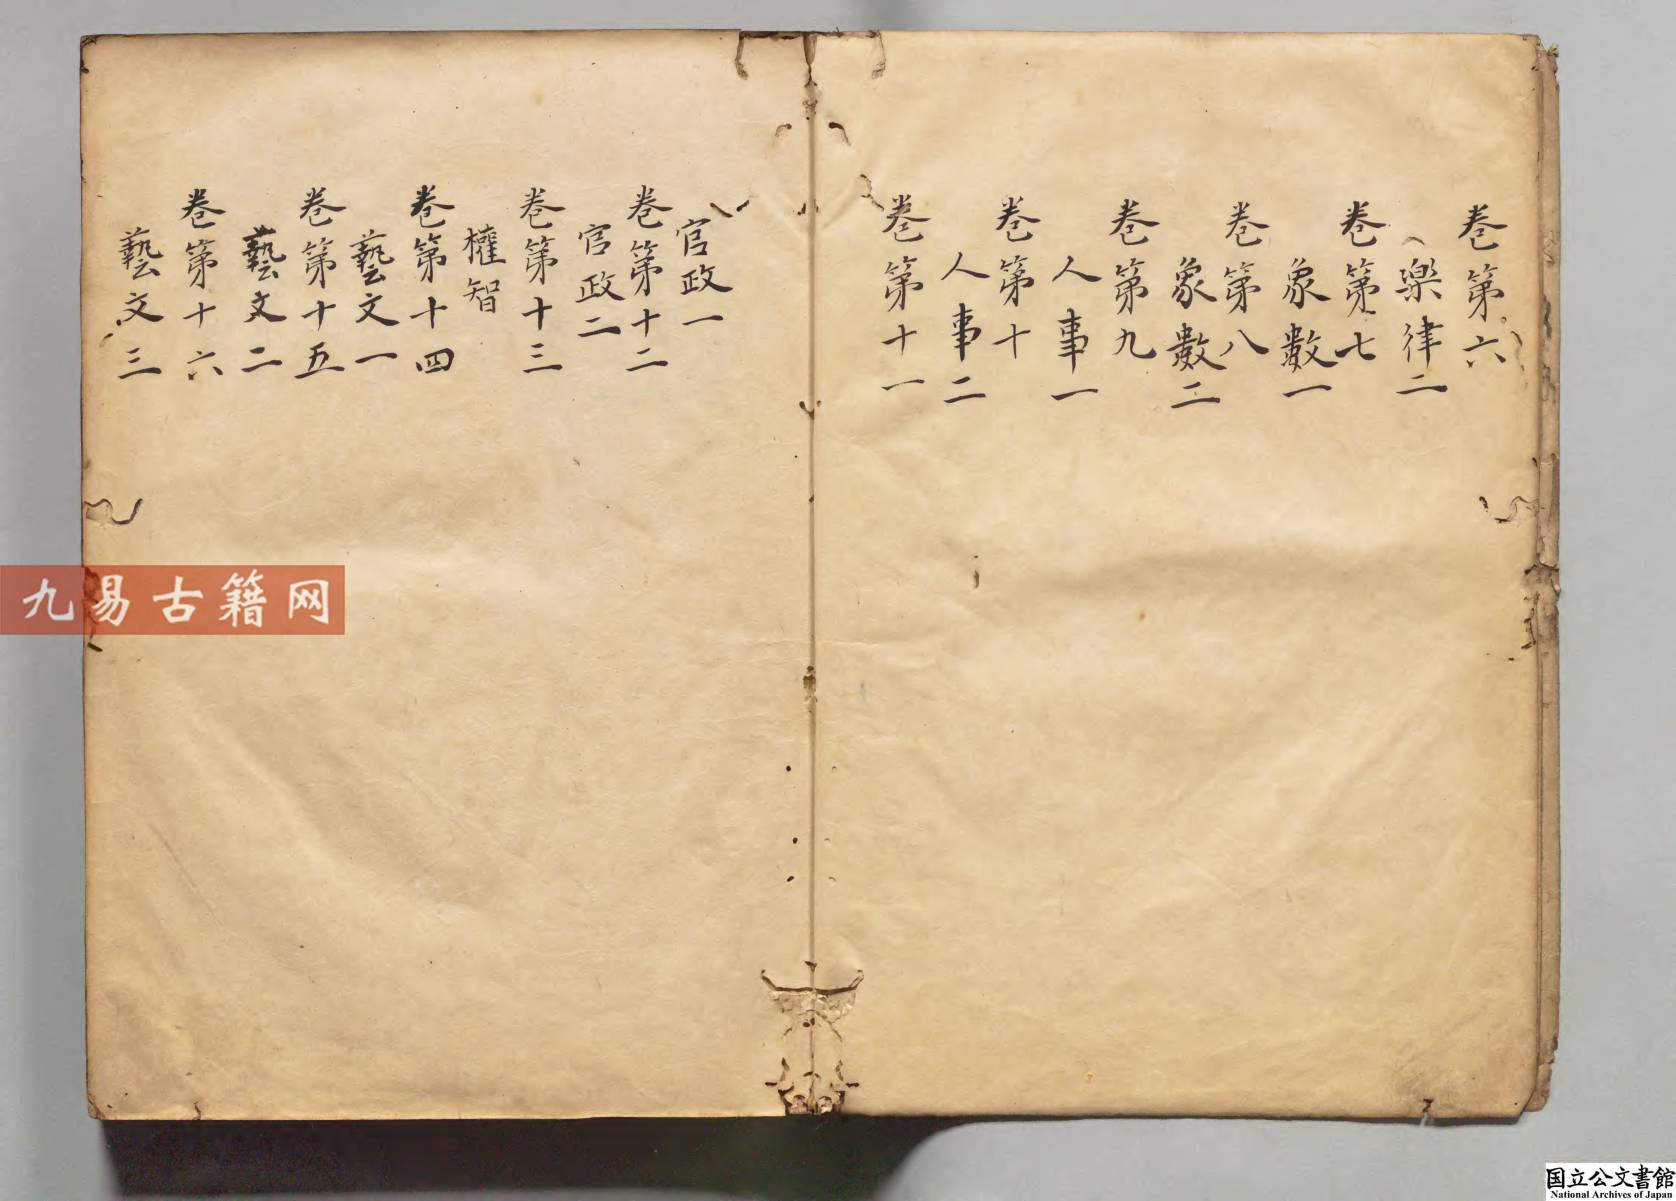 卷第六
樂律二
卷第七
象數一
卷第八
象數二
卷第九
人事一
卷第十
人事二
卷第十一
官政一
卷第十二
官政二
卷第十三
權智
卷第十四
藝文一
卷第十五
藝文二
卷第十六
藝文三
九易古籍网
国立公文書館
National Archives of Japan